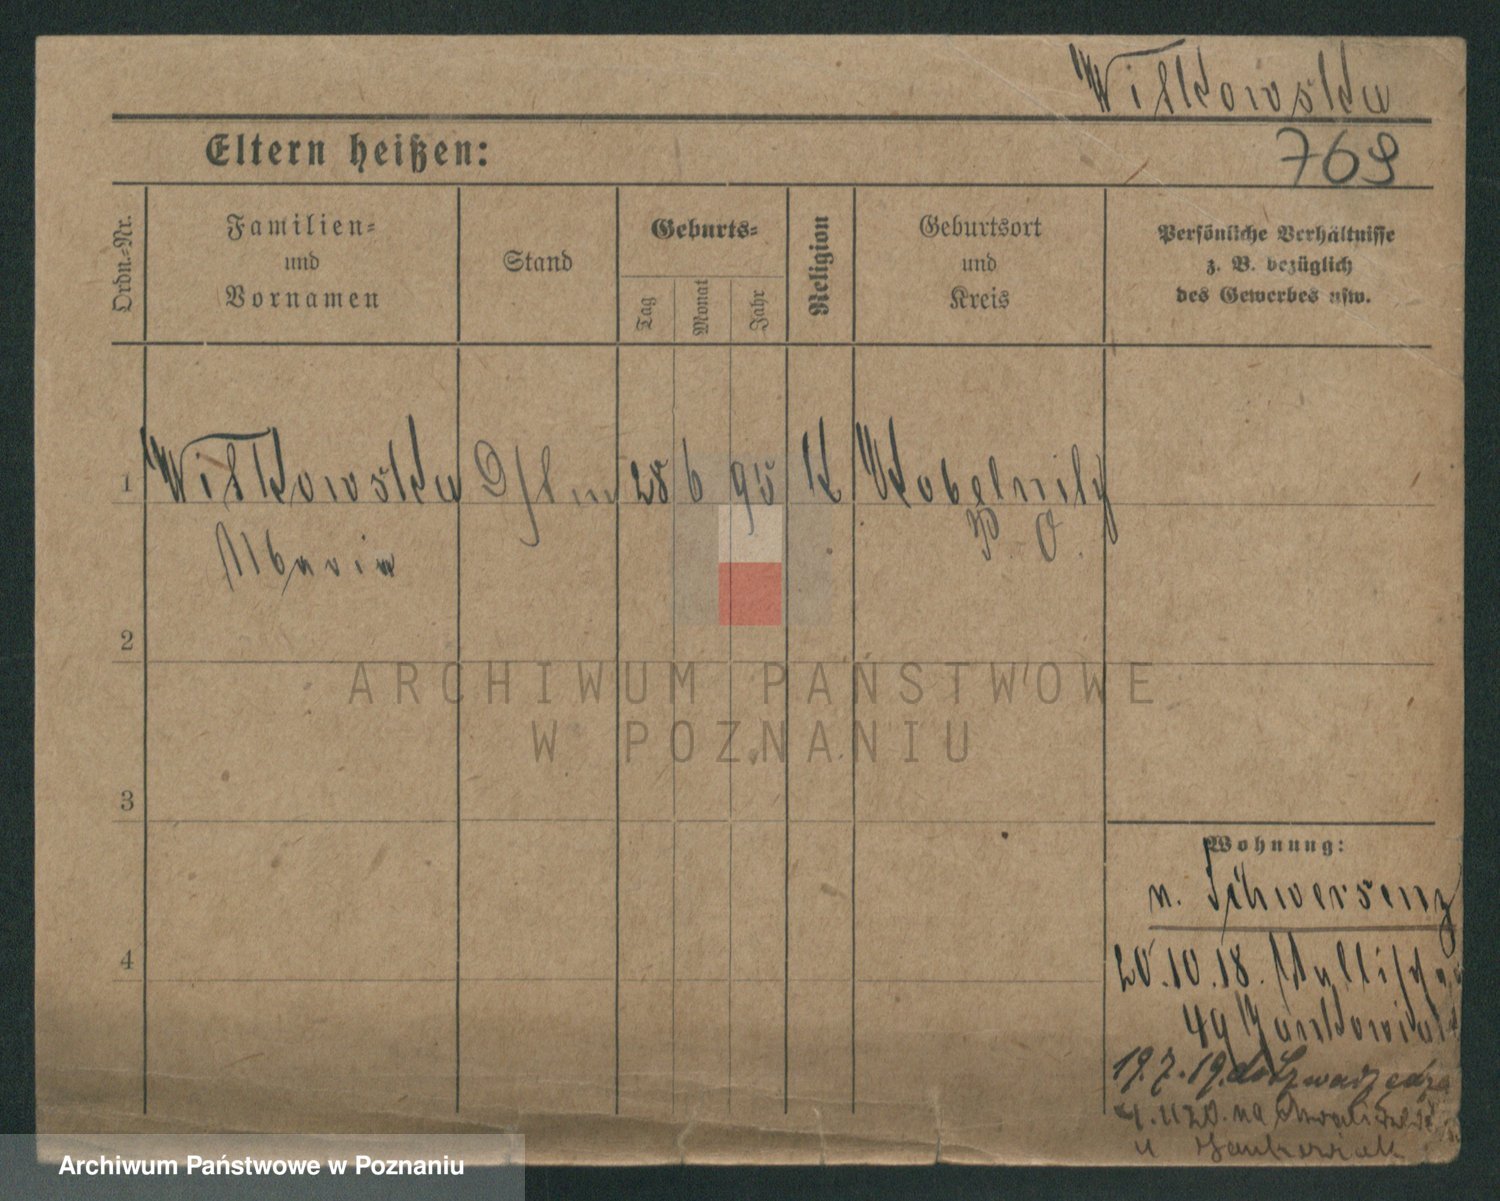 Witkowska
Eltern heißen:
769
Ordn.-Nr.
Familien=
und
Vornamen
Stand
Geburts=
Tag
Monat
Jahr
Religion
Geburtsort
und
Kreis
Persönliche Verhältnisse
z. B. bezüglich
des Gewerbes usw.
1 Witkowska 28 6 95 K Kobelnitz
Maria P. O.
2
3
4
Wohnung:
n. Schwersenz
20.10.18.
49 Jankowiak
19.7.19. do Szwadzedza
na
u Jankowiak
ARCHIWUM PAŃSTWOWE
W POZNANIU
Archiwum Państwowe w Poznaniu